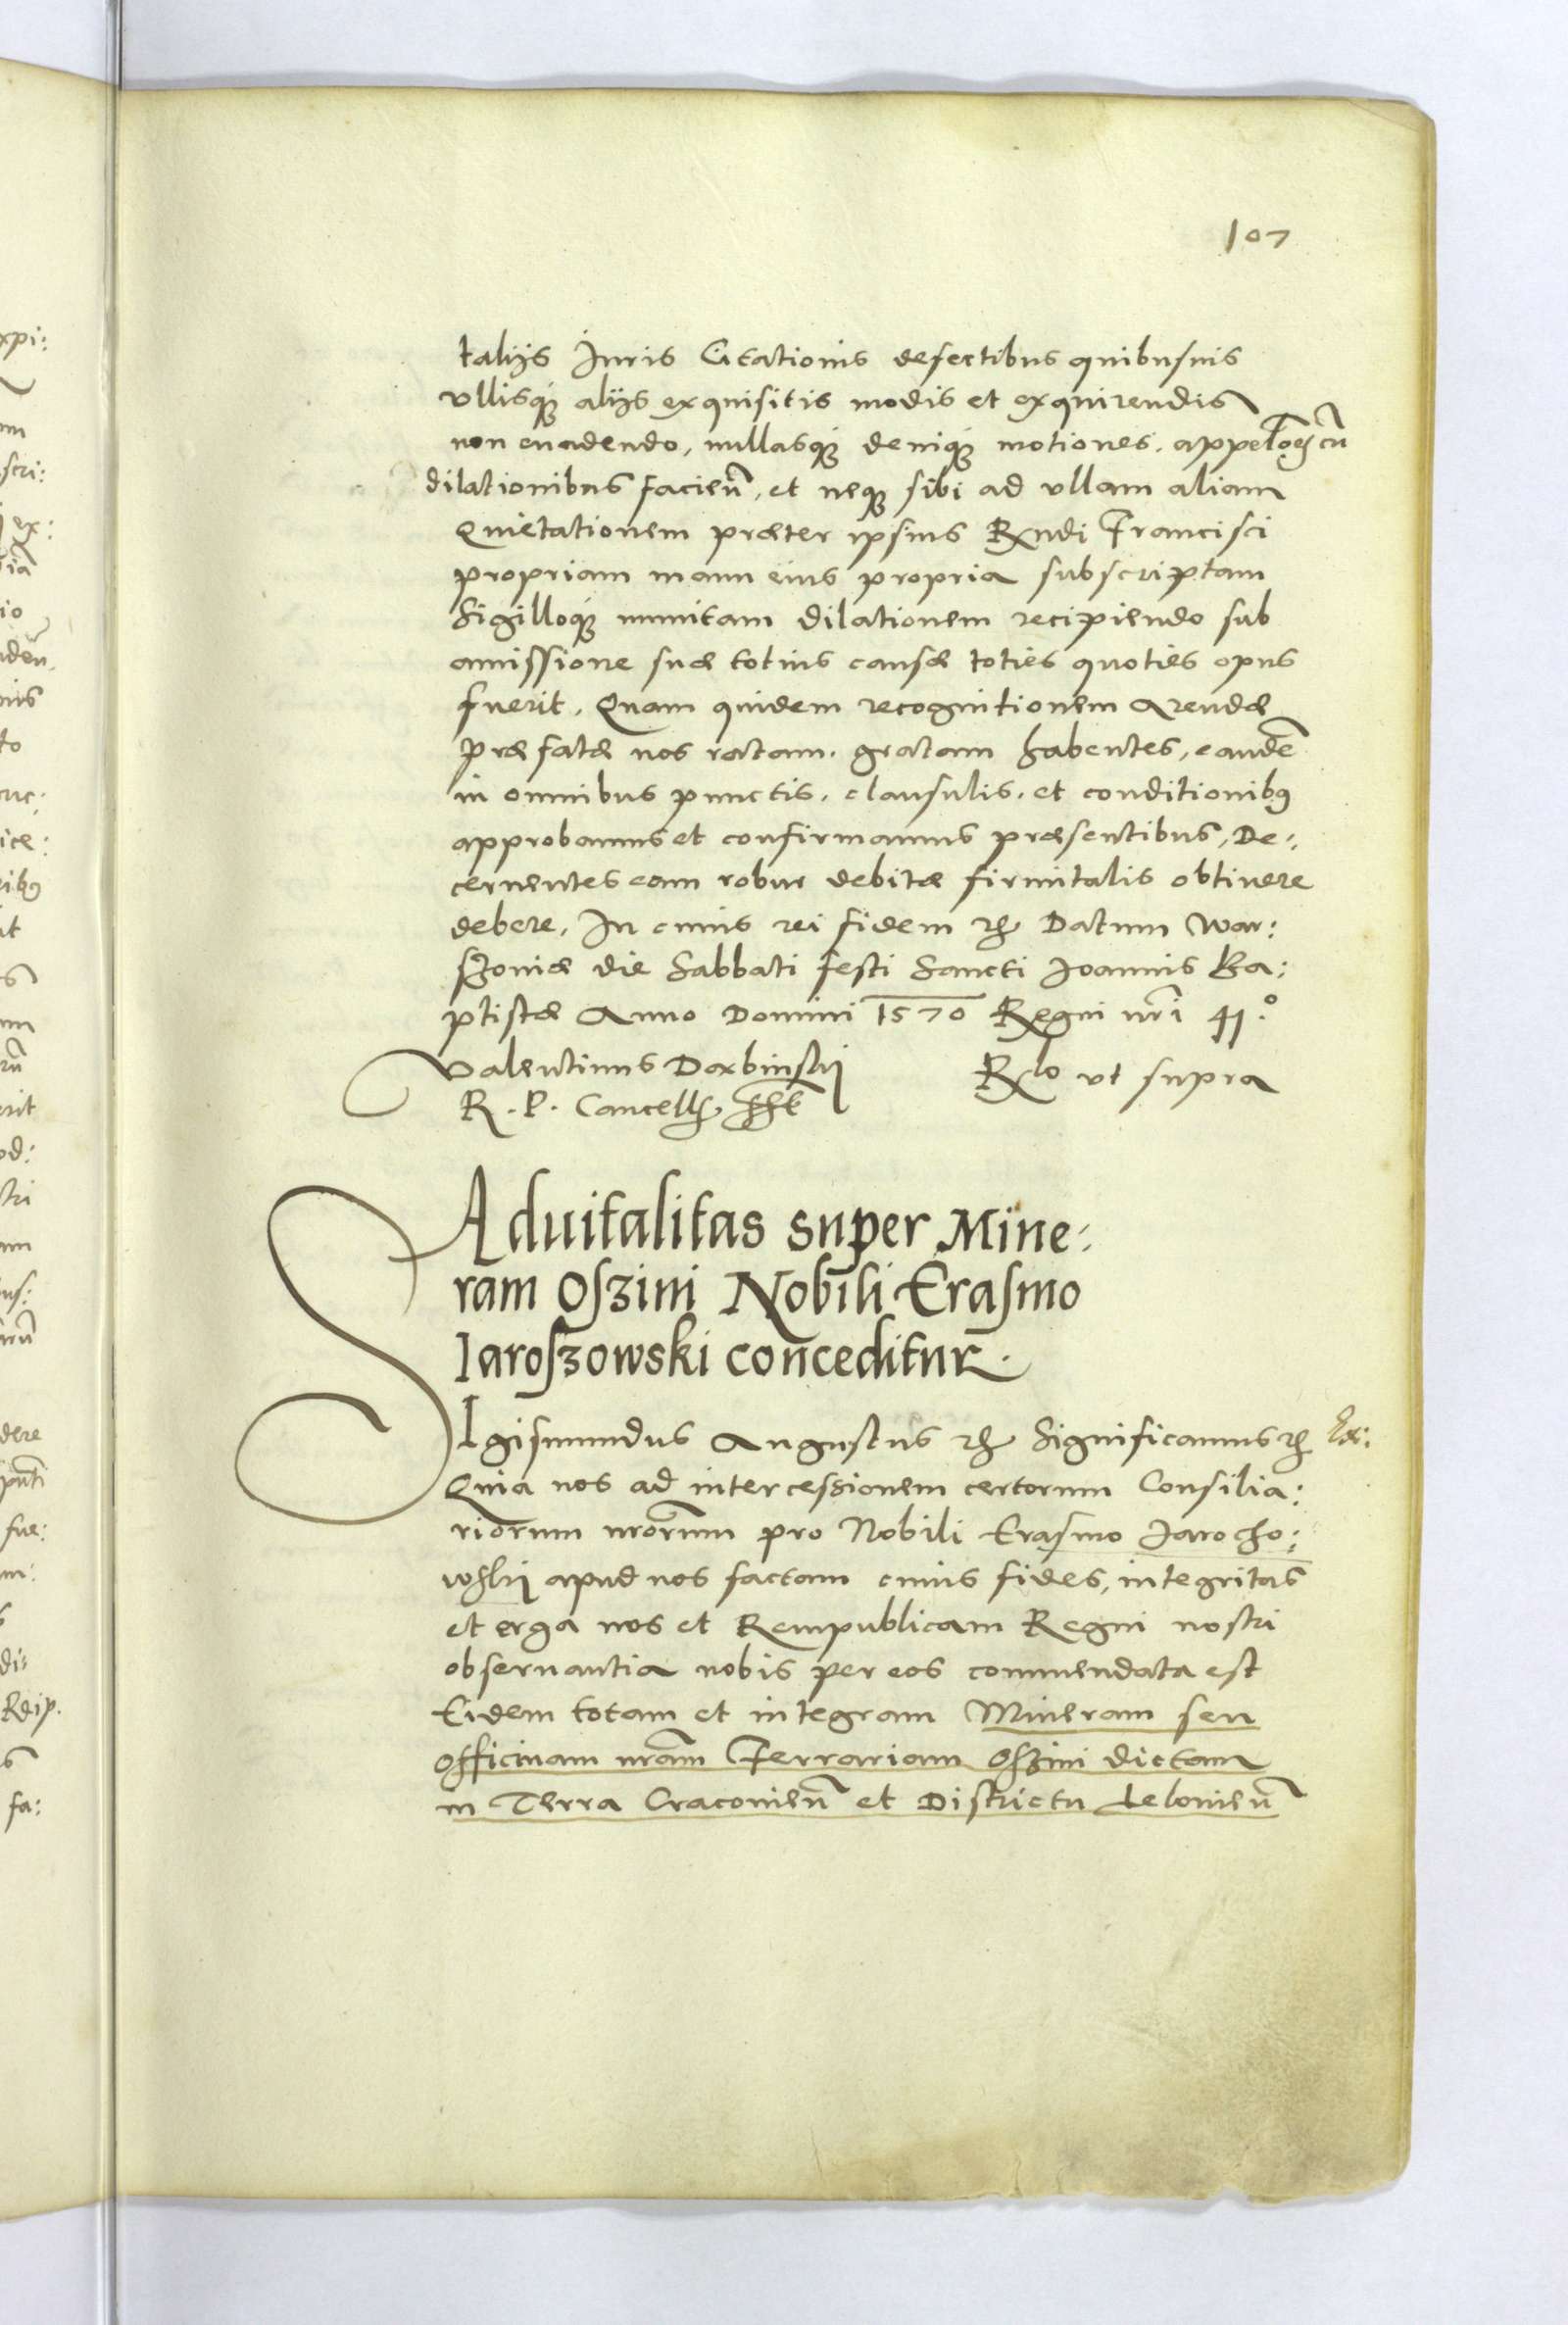 107
talijs Iuris Citationis defectibus quibusuis
vllisq́ue alijs exquisitis modis et exquirendis
non euadendo, nullasq́ue deniq́ue motiones. appelaões cũ
dilationibus facieñ, et neq́ue sibi ad vllam aliam
Quietationem præter ipsius Rndi Francisci
propriam manu eius propria subscriptam
Sigilloq́ue munitam dilationem recipiendo sub
amissione suæ totius causæ toties quoties opus
fuerit. Quam quidem recognitionem Arendæ
præfatæ nos ratam. gratam habentes, eandẽ
in omnibus punctis. clausulis. et conditionibus
approbamus et confirmamus præsentibus, De-
cernentes eam robur debitæ firmitatis obtinere
debere, In cuius rei fidem etc Datum War:
szoviæ die Sabbati festi Sancti Joannis Ba:
ptistæ Anno Domini 1570 Regni nri 41.º
Valentinus Dambinskij
R. P. Cancell.
Rlo vt supra
Aduitalitas super Mine:
ram Oszini Nobili Erasmo
Iaroszowski conceditur.
SIgismundus Augustus etc Significamus etc Ex:
Quia nos ad intercessionem certorum Consilia:
riorum nrorum pro Nobili Erasmo Jarocho:
wskij apud nos factam cuius fides, integritas
et erga nos et Rempublicam Regni nostri
obseruantia nobis per eos commendata est
Eidem totam et integram Mineram seu
Officinam nram Ferrariam Oszini dictam
in Terra Cracovieñ et Districtu Leloviеñ
xpi:
scri:
ex:
io
to
ice:
rit
od:
tri
dere
fue:
di:
fa: